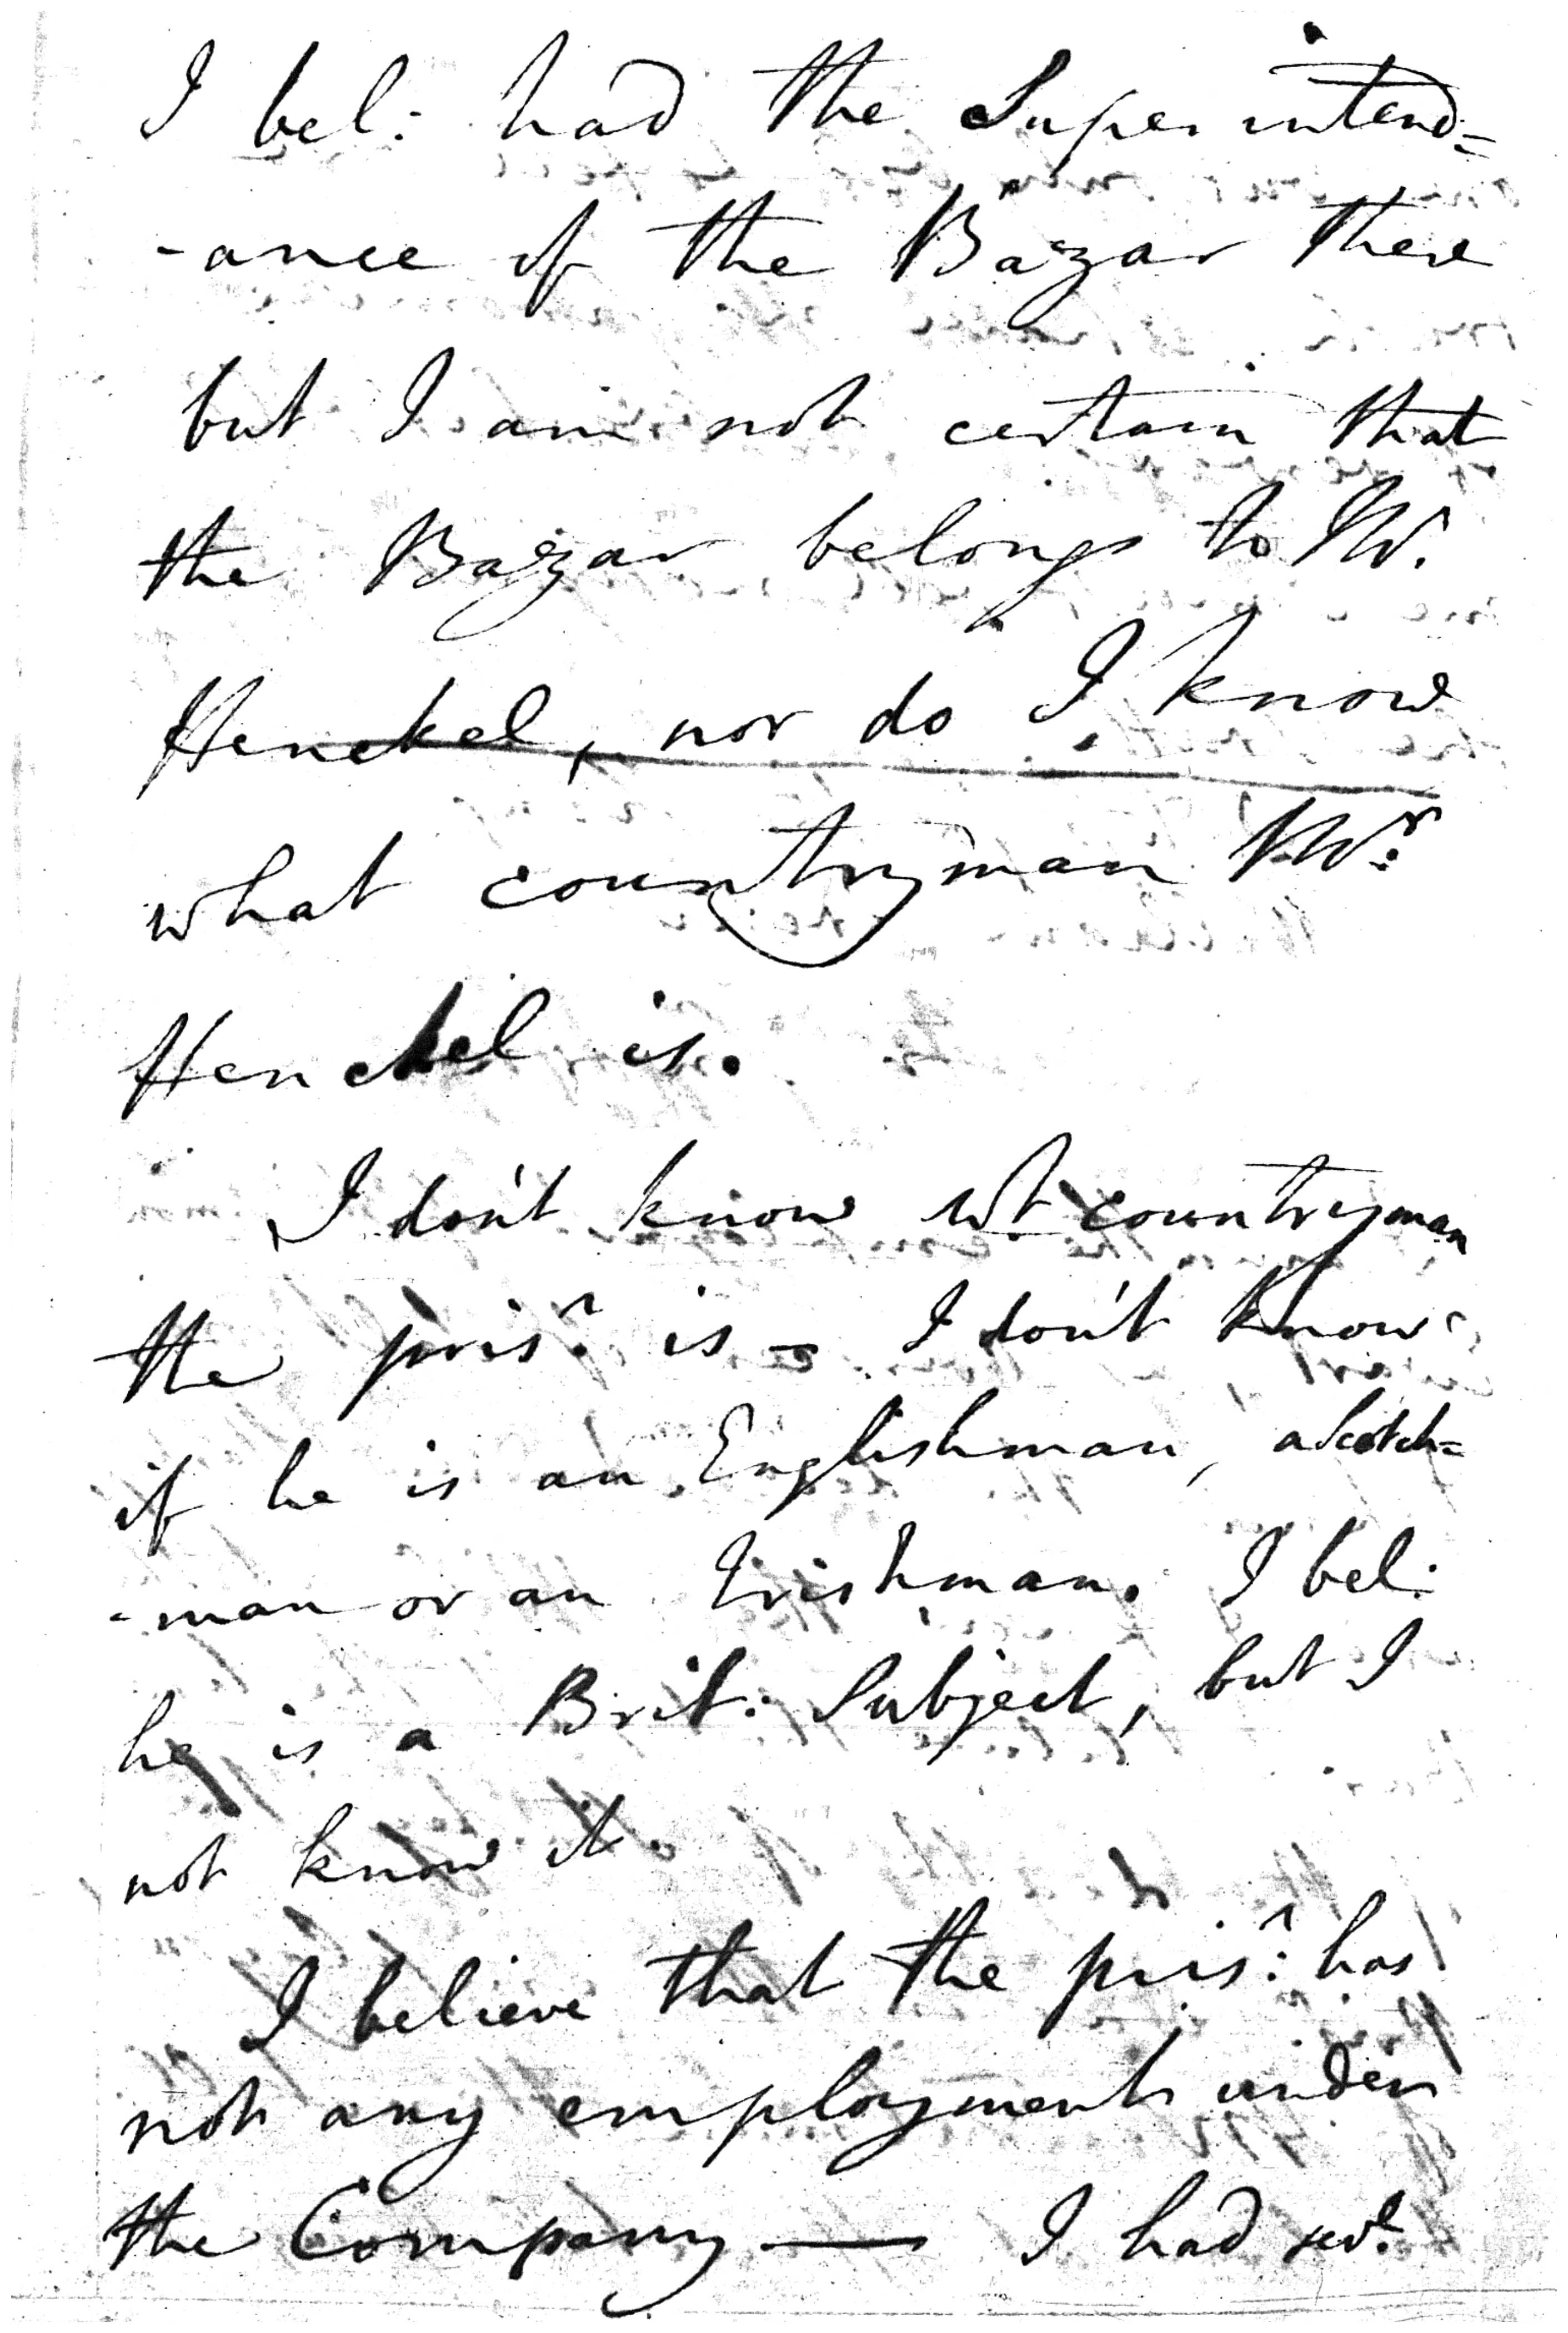 I bel: had the Superintend=
-ance of the Bazar there
but I am not certain that
the Bazar belongs to Mr.
Henckel, nor do I know
what countryman Mr.
Henckel is.
I don't know wt. countryman
the prisr. is - I don't know
if he is an Englishman, a Scotch=
-man or an Irishman. I bel:
he is a Brit: Subject, but I
not know it.
I believe that the prisr. has
not any employment under
the Company — I had sevl.